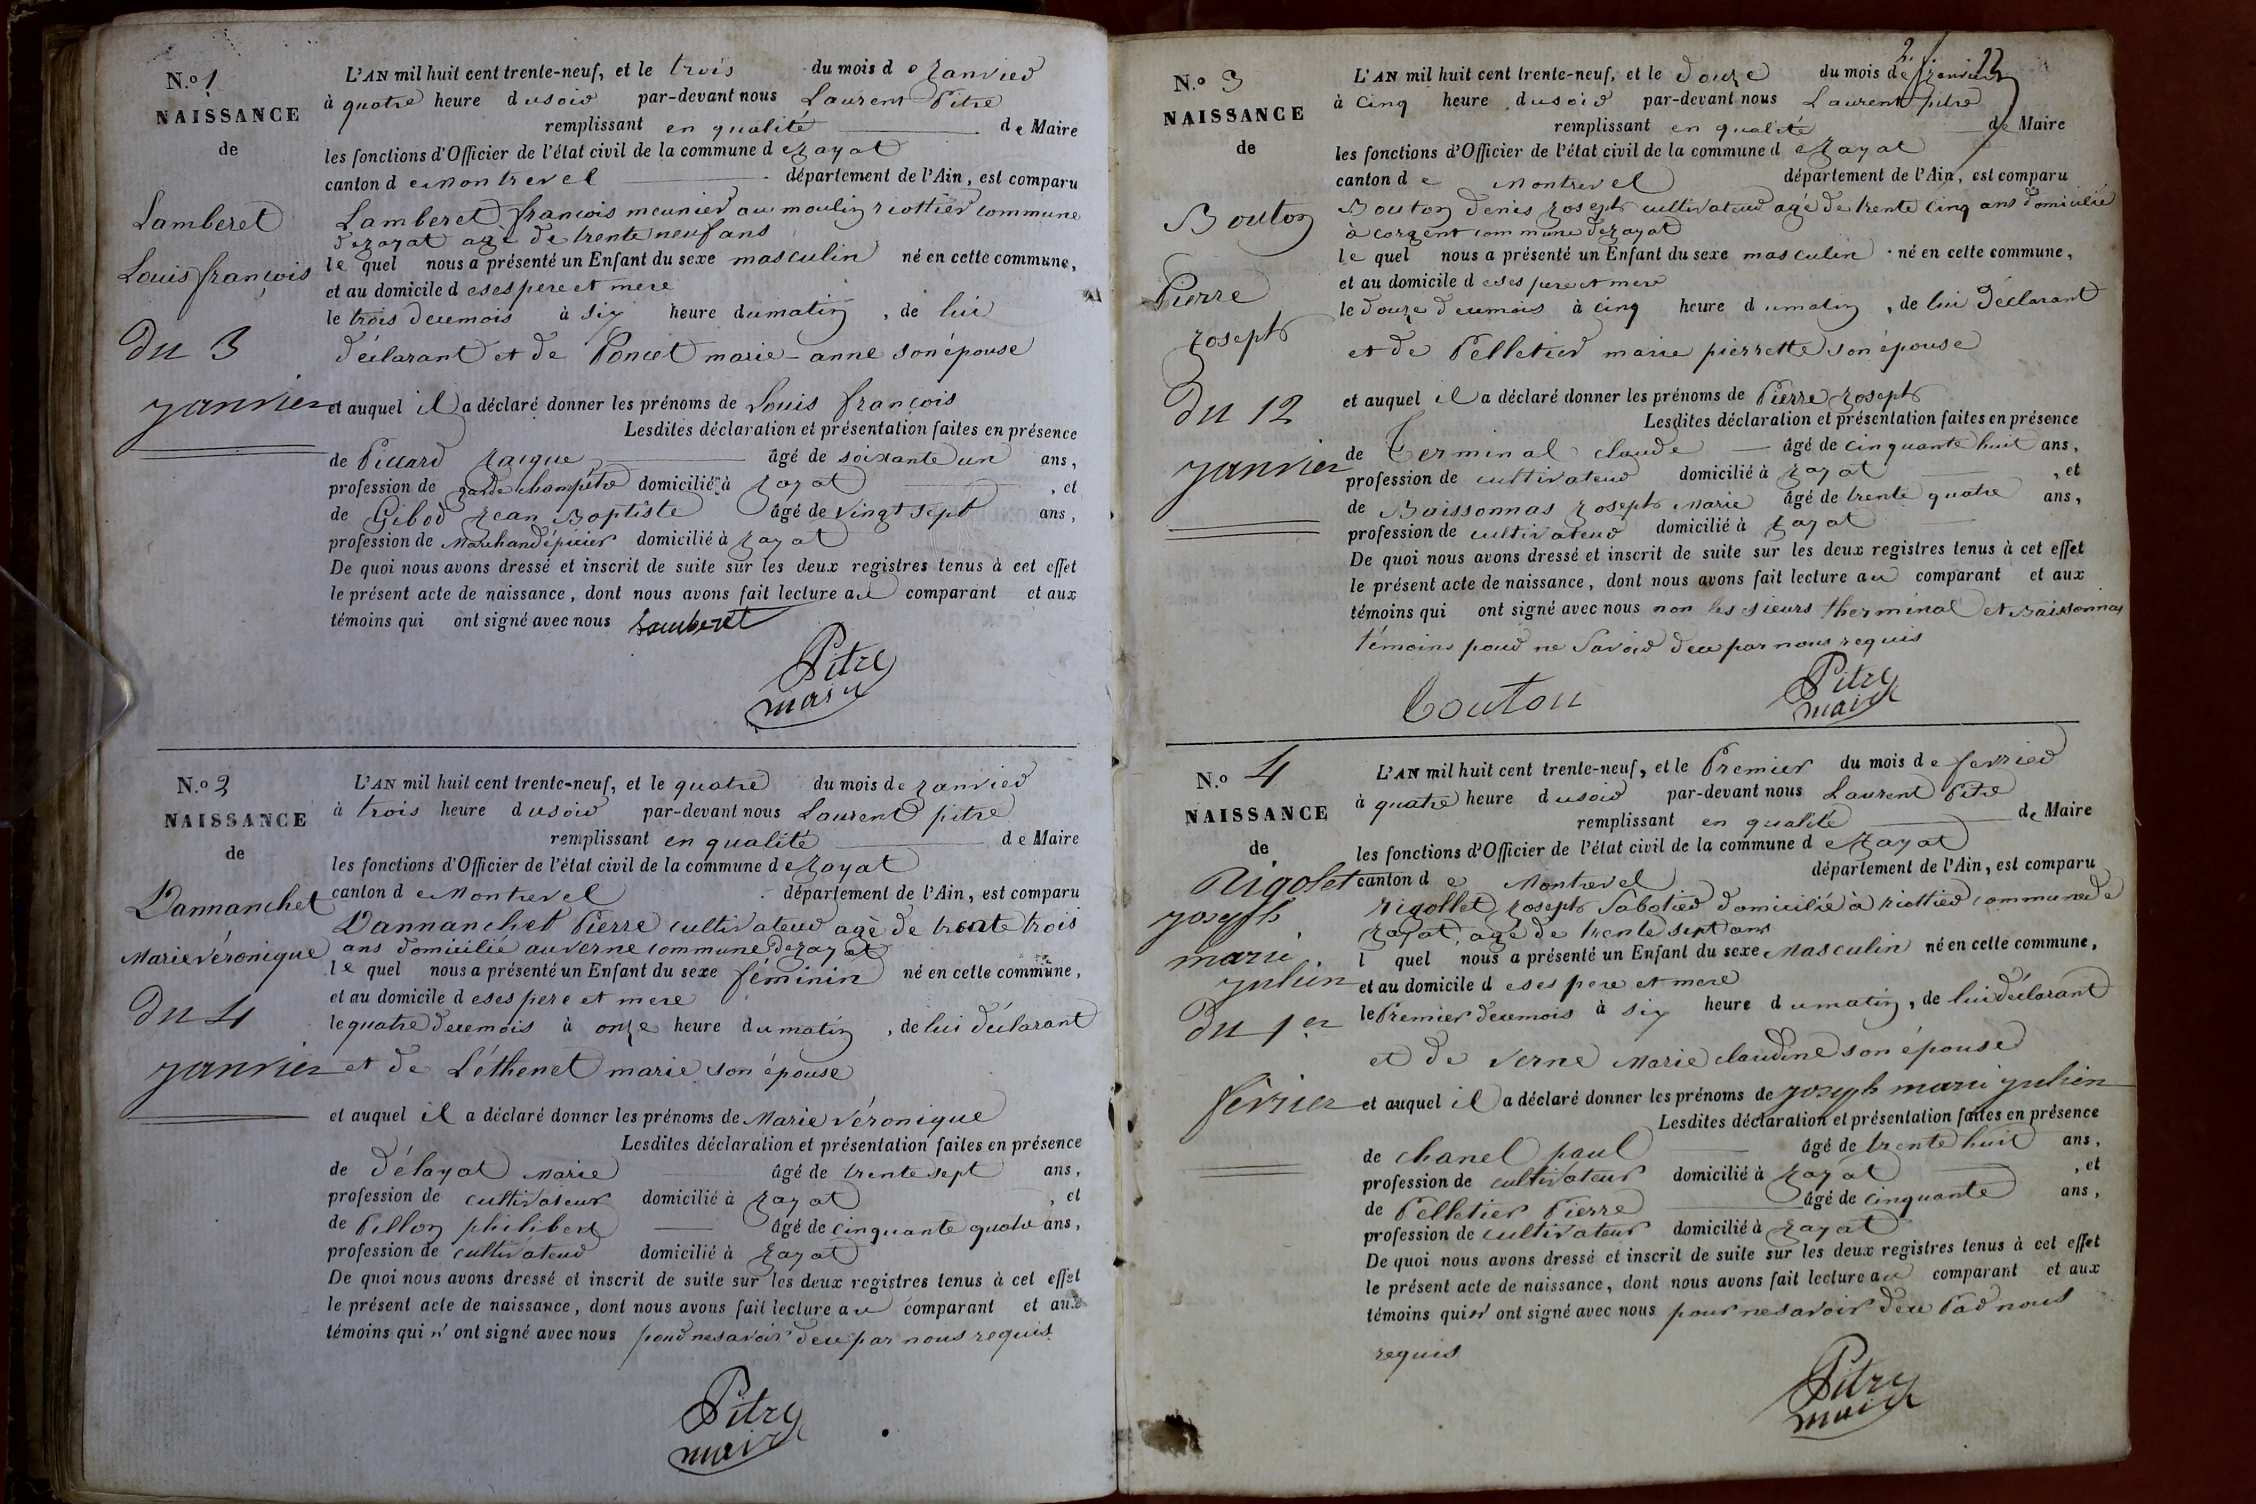 N.º 1
NAISSANCE
de
Lamberet
Louis françois
Du 3
janvier
L'AN mil huit cent trente-neuf, et le trois du mois de janvier
à quatre heure du soir par-devant nous Laurent Pitre
remplissant en qualité de Maire
les fonctions d'Officier de l'état civil de la commune de jayat
canton de Montrevel département de l'Ain, est comparu
Lamberet françois meunier au moulin riottier commune
de jayat agé de trente neuf ans
le quel nous a présenté un Enfant du sexe masculin né en cette commune,
et au domicile de ses pere et mere
le trois du mois à six heure du matin, de lui
déclarant et de Poncet marie-anne son épouse
et auquel il a déclaré donner les prénoms de Louis françois
Lesdites déclaration et présentation faites en présence
de Piccard jacque âgé de soixante un ans,
profession de garde champêtre domicilié à jayat, et
de Gibod jean Baptiste âgé de vingt sept ans,
profession de Marchand épicier domicilié à jayat
De quoi nous avons dressé et inscrit de suite sur les deux registres tenus à cet effet
le présent acte de naissance, dont nous avons fait lecture au comparant et aux
témoins qui ont signé avec nous Lamberet
Pitre
maire
N.º 2
NAISSANCE
de
Dannanchet
Marie véronique
Du 4
janvier
L'AN mil huit cent trente-neuf, et le quatre du mois de janvier
à trois heure du soir par-devant nous Laurent pitre
remplissant en qualité de Maire
les fonctions d'Officier de l'état civil de la commune de jayat
canton de Montrevel département de l'Ain, est comparu
Dannanchet Pierre cultivateur agé de trente trois
ans domicilié au verne commune de jayat
le quel nous a présenté un Enfant du sexe féminin né en cette commune,
et au domicile de ses pere et mere
le quatre du mois à onze heure du matin, de lui déclarant
et de Léthenet marie son épouse
et auquel il a déclaré donner les prénoms de Marie véronique
Lesdites déclaration et présentation faites en présence
de Délayat Marie âgé de trente sept ans,
profession de cultivateur domicilié à jayat, et
de Pillon philibert âgé de cinquante quatre ans,
profession de cultivateur domicilié à jayat
De quoi nous avons dressé et inscrit de suite sur les deux registres tenus à cet effet
le présent acte de naissance, dont nous avons fait lecture au comparant et aux
témoins qui n'ont signé avec nous pour ne savoir de ce par nous requis
Pitre
maire
N.º 3
NAISSANCE
de
Bouton
Pierre
joseph
Du 12
janvier
L'AN mil huit cent trente-neuf, et le douze du mois de janvier
à cinq heure du soir par-devant nous Laurent pitre
remplissant en qualité de Maire
les fonctions d'Officier de l'état civil de la commune de jayat
canton de Montrevel département de l'Ain, est comparu
Bouton denis joseph cultivateur agé de trente cinq ans domicilié
à corgent commune de jayat
le quel nous a présenté un Enfant du sexe masculin né en cette commune,
et au domicile de ses pere et mere
le douze du mois à cinq heure du matin, de lui déclarant
et de Pelletier marie pierrette son épouse
et auquel il a déclaré donner les prénoms de Pierre joseph
Lesdites déclaration et présentation faites en présence
de Terminal claude âgé de cinquante huit ans,
profession de cultivateur domicilié à jayat, et
de Boissonnas joseph Marie âgé de trente quatre ans,
profession de cultivateur domicilié à jayat
De quoi nous avons dressé et inscrit de suite sur les deux registres tenus à cet effet
le présent acte de naissance, dont nous avons fait lecture au comparant et aux
témoins qui ont signé avec nous non les sieurs therminal et Boissonnas
témoins pour ne savoir de ce par nous requis
bouton
Pitre
maire
N.º 4
NAISSANCE
de
Rigolet
joseph
marie
julien
Du 1er
février
L'AN mil huit cent trente-neuf, et le Premier du mois de fevrier
à quatre heure du soir par-devant nous Laurent Pitre
remplissant en qualité de Maire
les fonctions d'Officier de l'état civil de la commune de jayat
canton de Montrevel département de l'Ain, est comparu
rigollet joseph Sabotier domicilié à riottier commune de
jayat, agé de trente sept ans
l quel nous a présenté un Enfant du sexe Masculin né en cette commune,
et au domicile de ses pere et mere
le Premier du mois à six heure du matin, de lui déclarant
et de verne Marie claudine son épouse
et auquel il a déclaré donner les prénoms de joseph marie julien
Lesdites déclaration et présentation faites en présence
de chanel paul âgé de trente huit ans,
profession de cultivateur domicilié à jayat, et
de Pelletier Pierre âgé de cinquante ans,
profession de cultivateur domicilié à jayat
De quoi nous avons dressé et inscrit de suite sur les deux registres tenus à cet effet
le présent acte de naissance, dont nous avons fait lecture au comparant et aux
témoins qui n'ont signé avec nous pour ne savoir de ce Par nous
requis
Pitre
maire